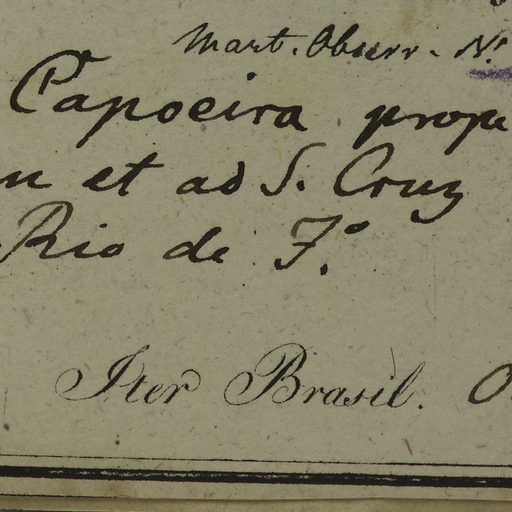 Mart. Observ. N.
Capoeira prope
et ad S. Cruz
Rio de J.º
Iter Brasil.